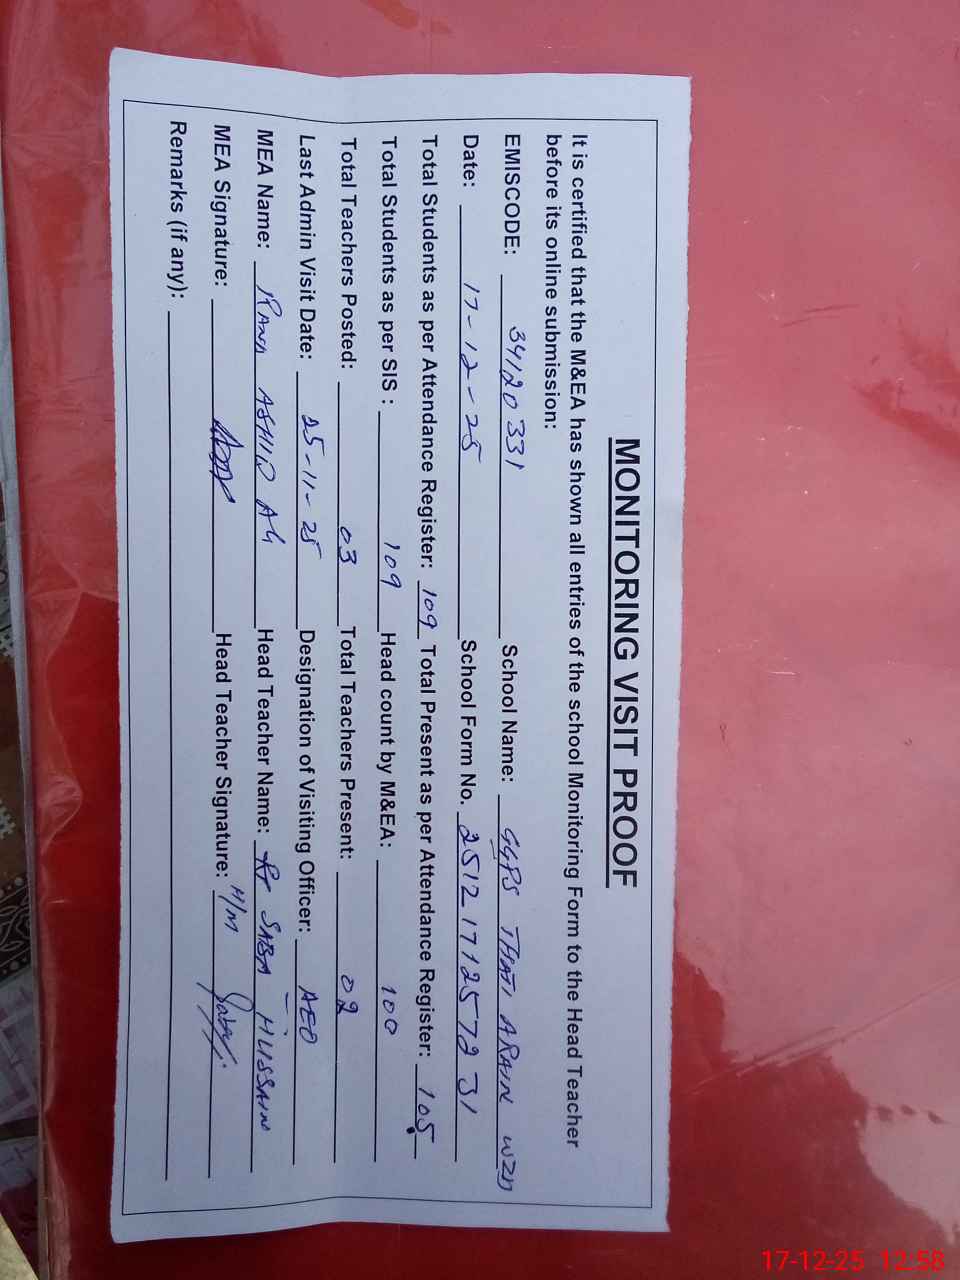 MONITORING VISIT PROOF
It is certified that the M&EA has shown all entries of the school Monitoring Form to the Head Teacher
before its online submission:
EMISCODE: 34120331 School Name: GGPS THATI ARAIN WZD
Date: 17-12-25 School Form No. 2512171257231
Total Students as per Attendance Register: 109 Total Present as per Attendance Register: 105
Total Students as per SIS : 109 Head count by M&EA: 100
Total Teachers Posted: 03 Total Teachers Present: 02
Last Admin Visit Date: 25-11-25 Designation of Visiting Officer: AEO
MEA Name: ALi Head Teacher Name: SABA HUSSAIN
MEA Signature: Head Teacher Signature: H/M
Remarks (if any):
17-12-25 12:58